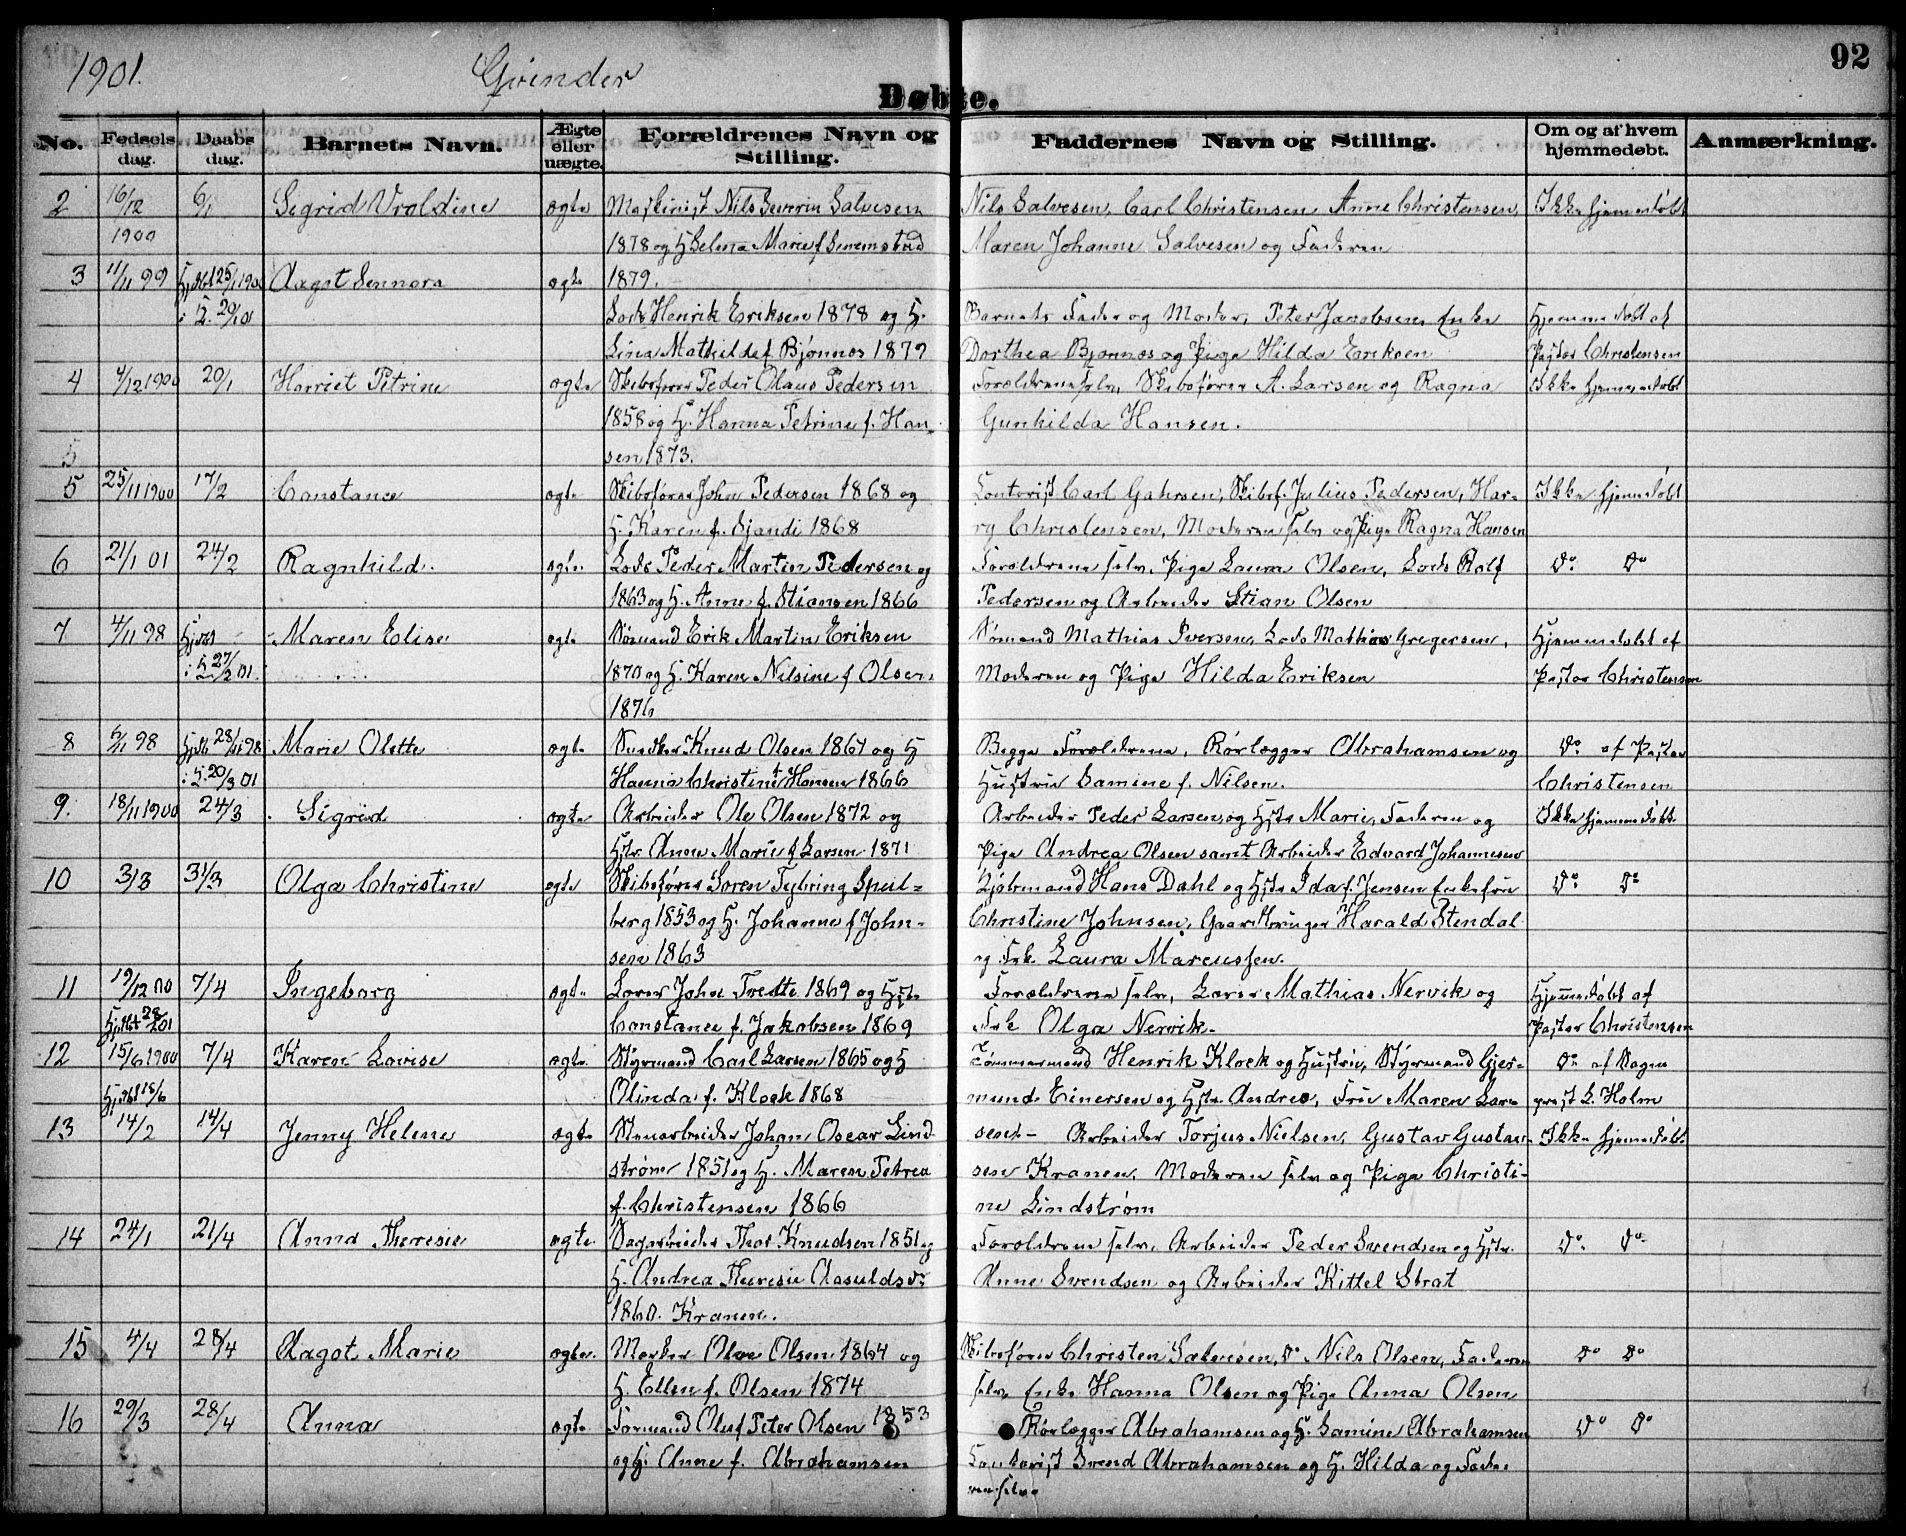 1901. Qvinder 92
Døbte.
No. Fødsels dag. Daabs dag. Barnets Navn. Ægte eller uægte. Forældrenes Navn og Stilling. Faddernes Navn og Stilling. Om og af hvem hjemmedøbt. Anmærkning.
2 16/12 6/1 Sigrid Valdine ægte Maskinist Nils Severin Salvesen Nils Salvesen, Carl Christensen Anne Christensen, Ikke hjemmedøbt
1900 1878 og H Helena Marie f Maren Johanne Salvesen og Faderen
3 11/11 99 Hjdbt 25/1 1900 Aagot Sennora ægte 1879.
i K. 20/1 01 Lods Henrik Eriksen 1878 og H. Barnets Fader og Moder, Peter Jacobsen, Enke Hjemmedøbt af
Lina Mathilde f Bjønnes 1879 Dorthea Bjønnes og Pige Hilda Eriksen Pastor Christensen
4 4/12 1900 20/1 Harriet Petrine ægte Skibsfører Peder Olaus Pedersen Forældrene selv, Skibsfører A. Larsen og Ragna Ikke hjemmedøbt
1858 og H. Hanna Petrine f. Han- Gunhilda Hansen.
5 sen 1873.
5 25/11 1900 17/2 Constance ægte Skibsfører John Pedersen 1868 og Contorist Carl Gahrsen, Skibsf. Julius Pedersen, Har- Ikke hjemmedøbt
H. Karen f. Sjandi 1868 ry Christensen, Moderen selv og Pige Ragna Hansen
6 21/1 01 24/2 Ragnhild ægte Lods Peder Martin Pedersen og Forældrene selv, Pige Laura Olsen, Lods Rolf Do Do
1863 og H. Anne f. Stiansen 1866 Pedersen og Arbeider Stian Olsen
7 4/11 98 Maren Elise ægte Sømand Erik Martin Eriksen Sømand Mathias Iversen, Lods Mathias Gregersen, Hjemmedøbt af
i K 27/2 01. 1870 og H. Karen Nilsine f Olsen Moderen og Pige Hilda Eriksen Pastor Christensen
1876
8 5/11 98 Hjdb 28/11 98 Marie Olette ægte Knud Olsen 1867 og H Begge Forældrene, Rørlægger Abrahamsen og Do af Pastor
i K 20/3 01 Hanna Christine f Hansen 1866 Hustru Samine f. Nilsen. Christensen
9. 18/11 1900 24/3 Sigrid ægte Arbeider Ole Olsen 1872 og Arbeider Peder Larsen og Hstr Marie, Faderen og Ikke hjemmedøbt.
Hstr. Anne Marie f Larsen 1871 Pige Andrea Olsen samt Arbeider Edvard Johannesen
10 3/3 31/3 Olga Christine ægte Skibsfører Søren Tybring Spul- Kjøbmand Hans Dahl og Hstr Ida f. Jensen Enkefru Do Do
berg 1853 og H. Johanne f John- Christine Johnsen, Gaardbruger Harald Stendal
sen 1863 og Frk. Laura Marcussen.
11 19/12 00 7/4 Ingeborg ægte John Tvedte 1869 og Hstr Forældrene selv, Mathias Nervik og Hjemmedøbt af
Hjdbt 28/2 01 Constance f. Jakobsen 1869 Frk Olga Nervik. Pastor Christensen
12 15/6 1900 7/4 Karen Lovise ægte Styrmand Carl Larsen 1865 og H Tømmermand Henrik Klock og Hustru, Styrmand Gjer- Do af Sogne
Hjdbt 18/6 Olinda f. Klock 1868 mund Einersen og Hstr Andrea, Fru Maren Lar- prest L. Holm
13 14/2 14/4 Jenny Helene ægte Stenarbeider Johan Oscar Lind sen - Arbeider Torjus Nielsen, Gustav Gustav- Ikke hjemmedøbt
strøm 1851 og H. Maren Petrea sen Kranen, Moderen selv og Pige Christi-
f. Christensen 1866 ne Lindstrøm
14 24/1 21/4 Anna Theresie ægte Thor Knudsen 1851 og Forældrene selv, Arbeider Peder Svendsen og Hstr. Do Do
H. Andrea Theresie Aasuldsd. Anne Svendsen og Arbeider Kittel Strat
1860. Kranen.
15 4/4 28/4 Aagot Marie ægte Olsen 1864 og Skibsfører Christen Salvesen, Do Nils Olsen, Faderen Do Do
H. Ellen f. Olsen 1874 selv, Enke Hanna Olsen og Pige Anna Olsen
16 29/3 28/4 Anna ægte Formand Oluf Peter Olsen 1853 Rørlægger Abrahamsen og H. Samine Abrahamsen Do Do
og H. Anne f. Abrahamsen Contorist Svend Abrahamsen og H. Hilda og Fade-
ren selv.